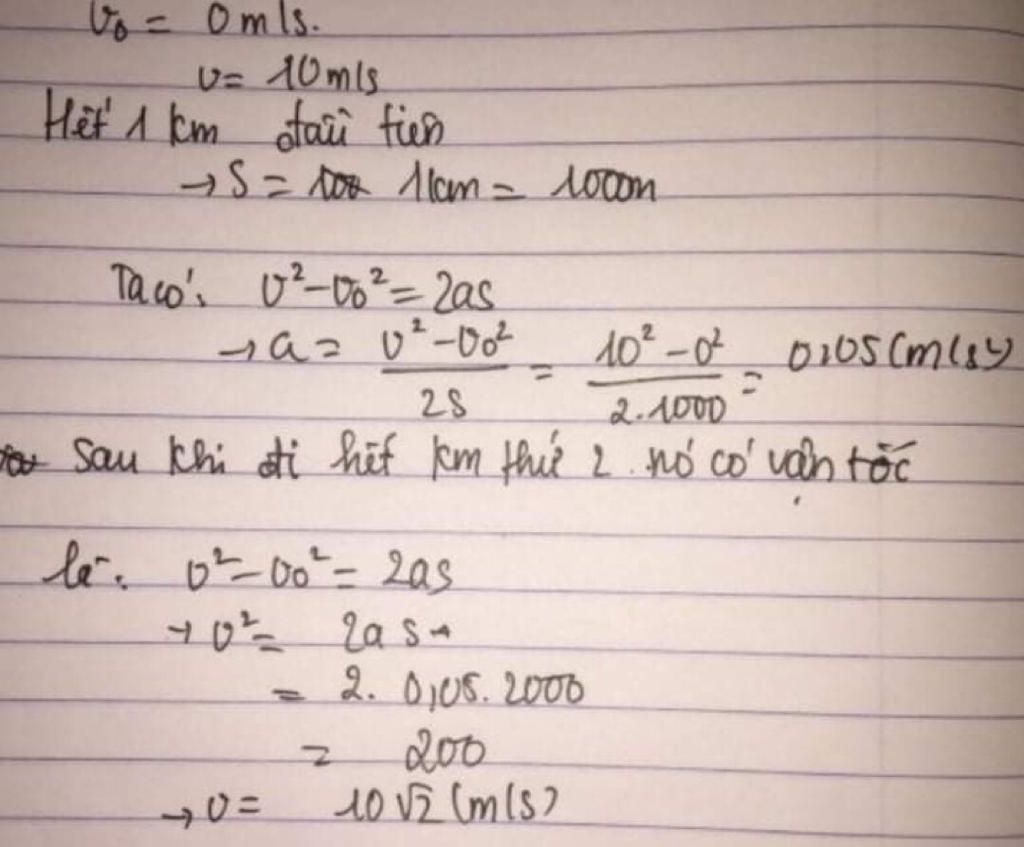 v₀ = 0 m/s.
v = 10 m/s
Hết 1 km đầu tiên
→ S = 1km = 1000m
Ta có: v² - v₀² = 2as
→ a = (v² - v₀²)/2s = (10² - 0²)/2.1000 = 0,05 (m/s²)
Sau khi đi hết km thứ 2 nó có vận tốc
là: v² - v₀² = 2as
→ v² = 2as
= 2. 0,05. 2000
= 200
→ v = 10√2 (m/s)